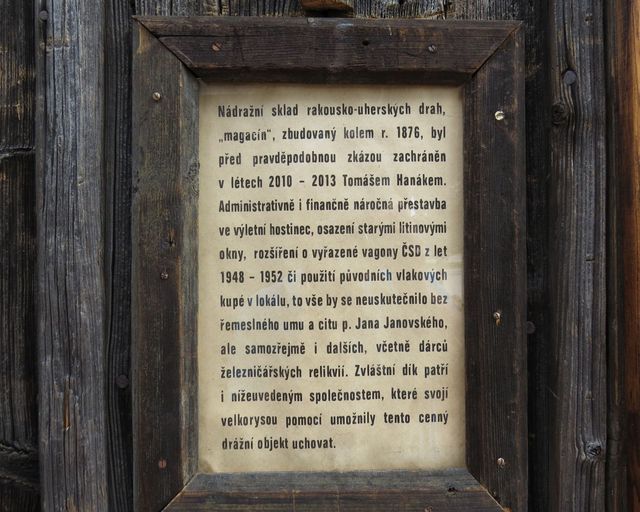 Nádražní sklad rakousko-uherských drah,
„magacín“, zbudovaný kolem r. 1876, byl
před pravděpodobnou zkázou zachráněn
v létech 2010 - 2013 Tomášem Hanákem.
Administrativně i finančně náročná přestavba
ve výletní hostinec, osazení starými litinovými
okny, rozšíření o vyřazené vagony ČSD z let
1948 - 1952 či použití původních vlakových
kupé v lokálu, to vše by se neuskutečnilo bez
řemeslného umu a citu p. Jana Janovského,
ale samozřejmě i dalších, včetně dárců
železničářských relikvií. Zvláštní dík patří
i níževedeným společnostem, které svojí
velkorysou pomocí umožnily tento cenný
drážní objekt uchovat.